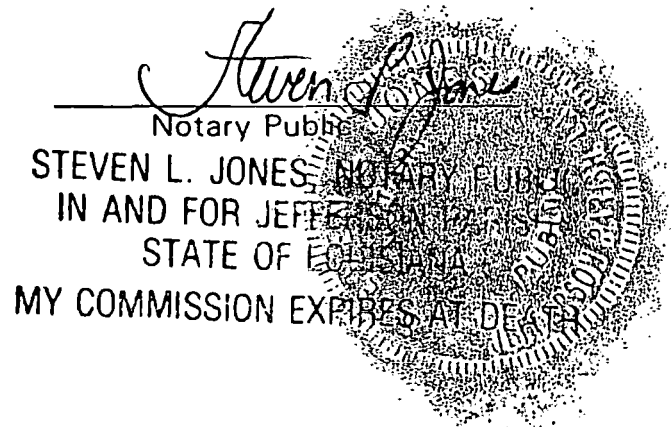 Steven L Jones
Notary Public
STEVEN L. JONES, NOTARY PUBLIC
IN AND FOR JEFFERSON PARISH
STATE OF LOUISIANA
MY COMMISSION EXPIRES AT DEATH
JONES
Public
JEFFERSON PARISH